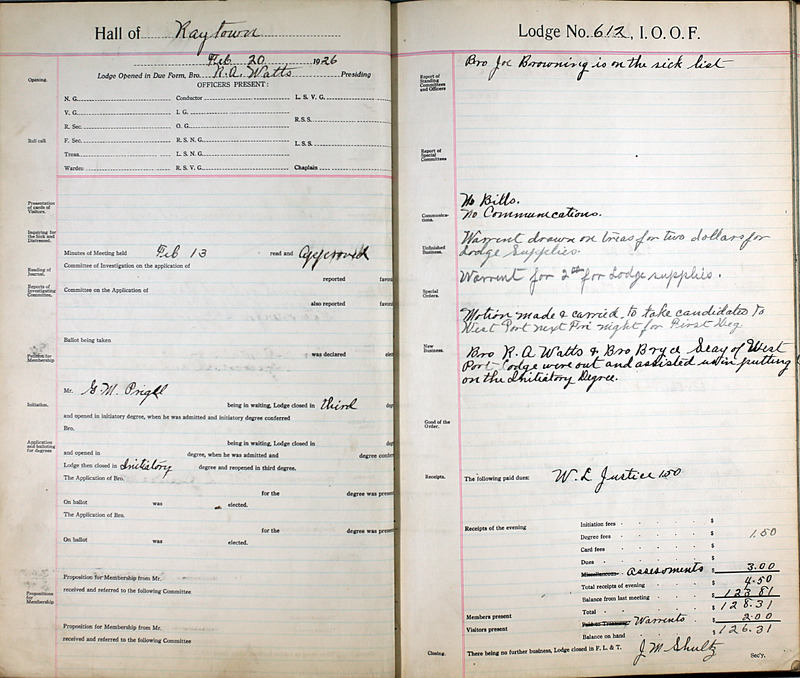 Hall of Raytown
Feb 20 1926
Lodge Opened in Due Form, Bro. R. A. Watts Presiding
Opening.
OFFICERS PRESENT:
N. G. Conductor L. S. V. G.
V. G. I. G.
R.S.S.
R. Sec. O. G.
Roll call
F. Sec. R. S. N. G. L.S.S.
Treas. L. S. N. G.
Warden R. S. V. G. Chaplain
Presentation
of cards of
Visitors.
Inquiring for
the Sick and
Distressed.
Minutes of Meeting held Feb 13 read and approved
Reading of
Journal.
Committee of Investigation on the application of
reported favor
Reports of
Investigating
Committee.
Committee on the Application of
also reported favor
Ballot being taken
was declared elec
Petition for
Membership
Mr. G. M.
Initiation.
being in waiting, Lodge closed in third deg
and opened in initiatory degree, when he was admitted and initiatory degree conferred
Bro.
Application
and balloting
for degrees
being in waiting, Lodge closed in deg
and opened in degree, when he was admitted and degree confer
Lodge then closed in Initiatory degree and reopened in third degree.
The Application of Bro.
for the degree was presen
On ballot was elected.
The Application of Bro.
for the degree was presen
On ballot was elected.
Propositions
for
Membership.
Proposition for Membership from Mr.
received and referred to the following Committee
Proposition for Membership from Mr.
received and referred to the following Committee
Lodge No. 612, I. O. O. F.
Report of
Standing
Committees
and Officers
Bro Joe Browning is on the sick list
Report of
Special
Committees
No Bills.
Communica-
tions.
No Communications.
Unfinished
Business.
Warrent drawn on treas for two dollars for
Lodge Supplies
Special
Orders.
Warrent for 2.00 for Lodge supplies.
Motion made & carried to take candidates to
West Port next Fri night for First Deg
New
Business.
Bro R. A Watts & Bro Bryce Seay of West
Port Lodge were out and assisted us in putting
on the Initiatory Degree.
Good of the
Order.
Receipts.
The following paid dues: W. L Justice 1.50
Receipts of the evening
Initiation fees $
Degree fees $ 1.50
Card fees $
Dues $
Miscellaneous Assesments $ 3.00
Total receipts of evening $ 4.50
Balance from last meeting $ 123.81
Total $ 128.31
Members present
Paid to Treasury Warrents $ 2.00
Visitors present
Balance on hand $ 126.31
Closing.
There being no further business, Lodge closed in F. L. & T. J M Shultz Sec'y.